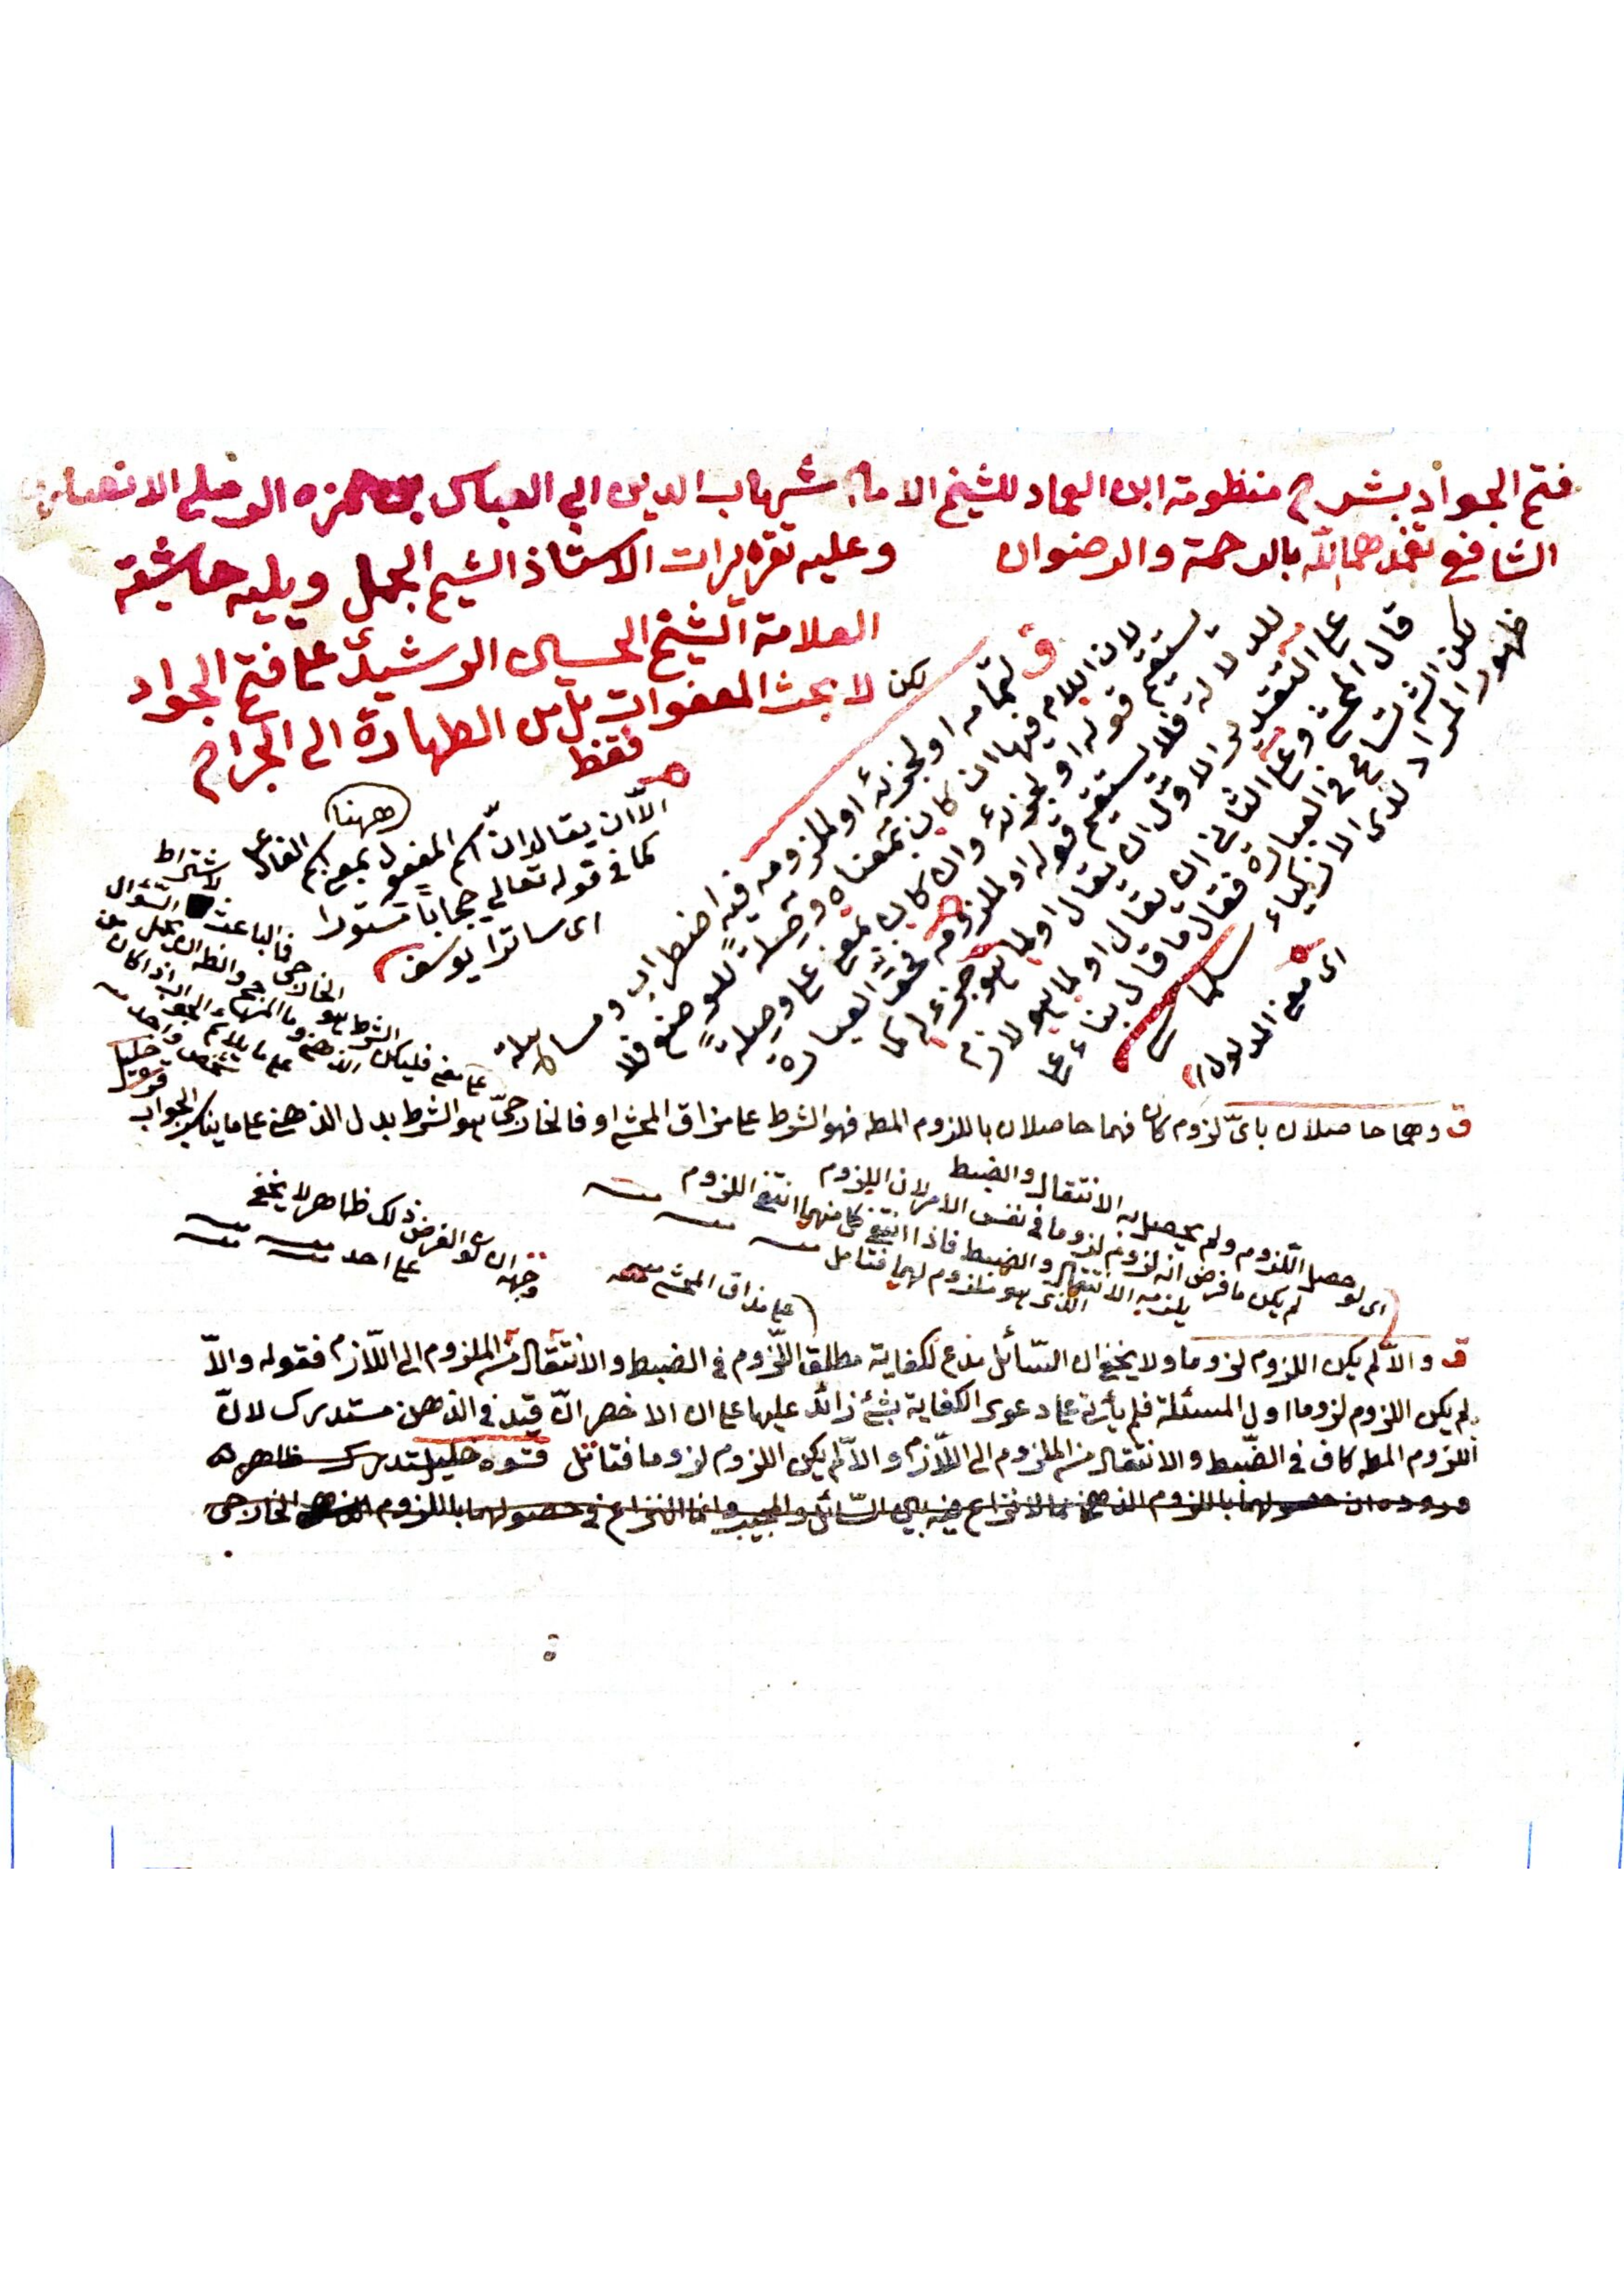 فتح الجواد بشرح منظومة ابن العماد للشيخ الامام شهاب الدين ابي العباس بن حمزه الرملي الانصاري
الشافعي تغمدهما الله بالرحمة والرضوان وعليه تقريرات الاستاذ الشيخ الجمل ويليه حاشية
العلامة الشيخ الحسين الرشيدى على فتح الجواد
لكن لا بحث المعفوات بل من الطهارة الى الجراح
فقط
ق لتمامه او لجزئه او للزومه فيه اضطراب ومساهلة
لان اللام فيها ان كان بمعناه وصلة للوضع فلا
يستقيم قوله او لجزئه وان كان بمعنى على وصلة
للدلالة فلا يستقيم قوله او للزومه فحق العبارة
على التقدير الاول ان يقال او لما هو جزء له كما
قال المحشى وعلى الثانى ان يقال او لما هو لازم
لكن الش تسامح فى العبارة فقال ما قال بناء على
ظهور المراد لدى الازكياء
اى معنى المدلول
الا ان يقال ان اسم المفعول بمعنى اسم الفاعل ههنا
كما فى قوله تعالى حجابا مستورا
اى ساترا يوسف
لاشتراط
فالباعث السؤال
الخارجى
ق وهما حاصلان باى لزوم كان فهما حاصلان باللزوم المطه فهو الشرط على مزاق المحشى او فالخارجى هو الشرط بدل الذهنى على ما يناسب الجواب
اى لو حصل اللزوم ولم يحصل به الانتقال والضبط
لم يكن ما فرض انه لزوم لزوما فى نفس الامر لان اللزوم
يلزمه الانتقال والضبط فاذا انتفى كل منهما انتفى اللزوم
الذى هو ملزوم لهما فتامل
على مذاق المحشى
وجهه ان لو الفرض ذلك ظاهر لا يخفى
على احد
ق والا لم يكن اللزوم لزوما ولا يخفى ان السائل مدع لكفاية مطلق اللزوم فى الضبط والانتقال من الملزوم الى اللازم فقوله والا
لم يكن اللزوم لزوما اول المسئلة فلم يأت على دعوى الكفاية بشئ زائد عليها على ان الاخصر ان قيد فى الذهن مستدرك لان
اللزوم المطه كاف فى الضبط والانتقال من الملزوم الى اللازم والا لم يكن اللزوم لزوما فتامل قوله مستدرك ظاهره
حصولهما باللزوم السائل والمجيب وانما النزاع فى حصولهما باللزوم الخارجى